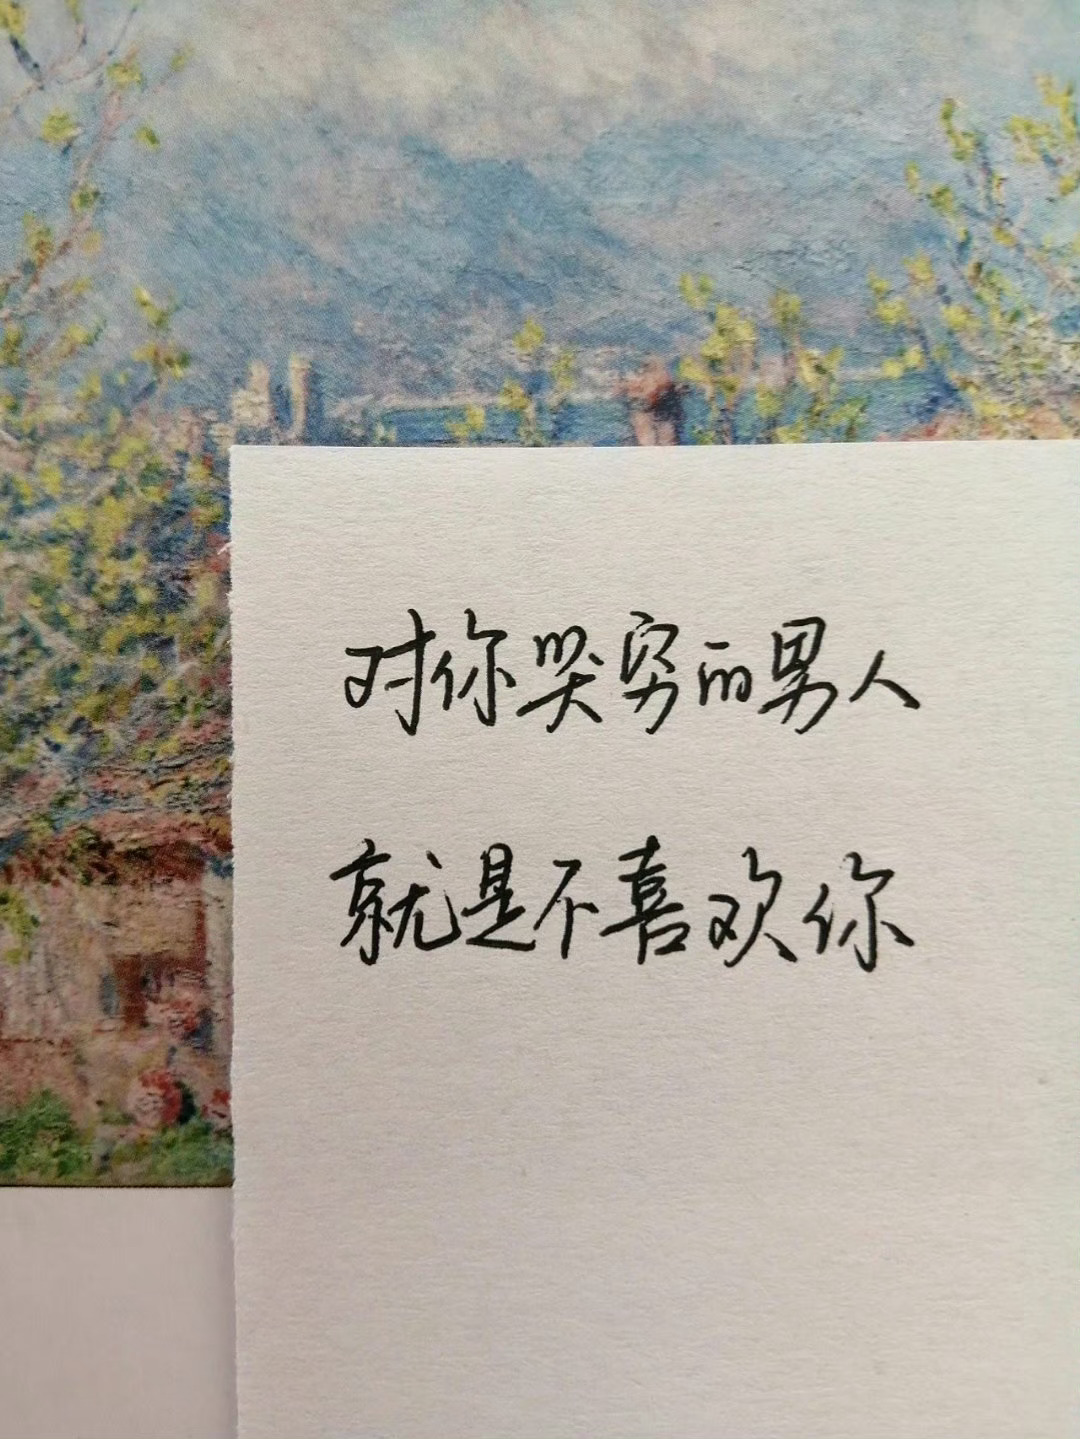 对你哭穷的男人
就是不喜欢你